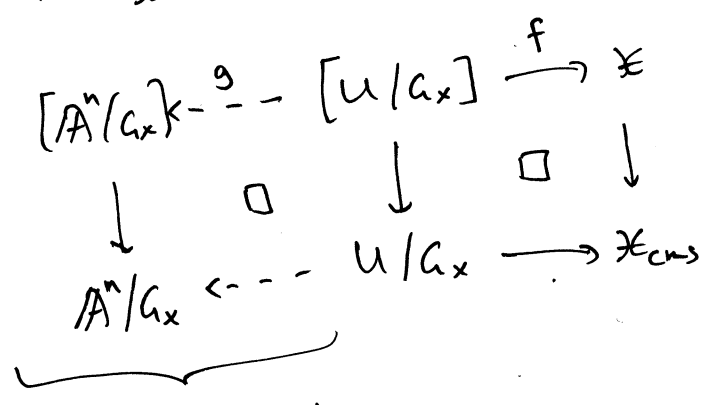 f
[𝔸ⁿ/Gₓ] ⇠ g [U/Gₓ] → 𝔛
□ □
𝔸ⁿ/Gₓ ⇠ U/Gₓ → 𝔛cms